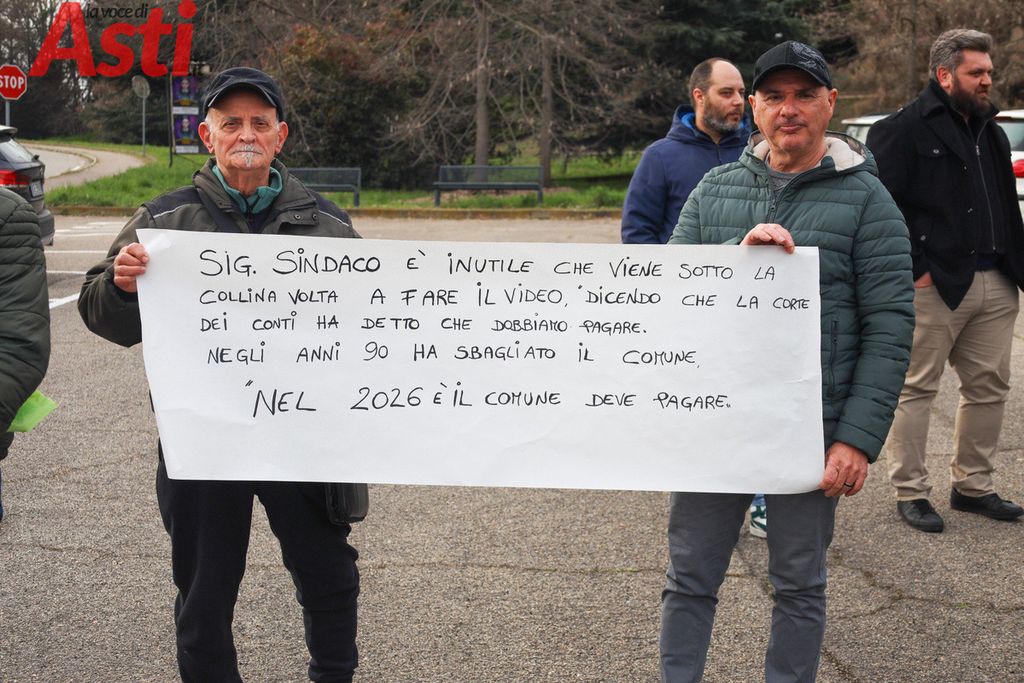 la voce di
Asti
STOP
SIG. SINDACO È INUTILE CHE VIENE SOTTO LA
COLLINA VOLTA A FARE IL VIDEO, "DICENDO CHE LA CORTE
DEI CONTI HA DETTO CHE DOBBIAMO PAGARE.
NEGLI ANNI 90 HA SBAGLIATO IL COMUNE,
"NEL 2026 È IL COMUNE DEVE PAGARE"